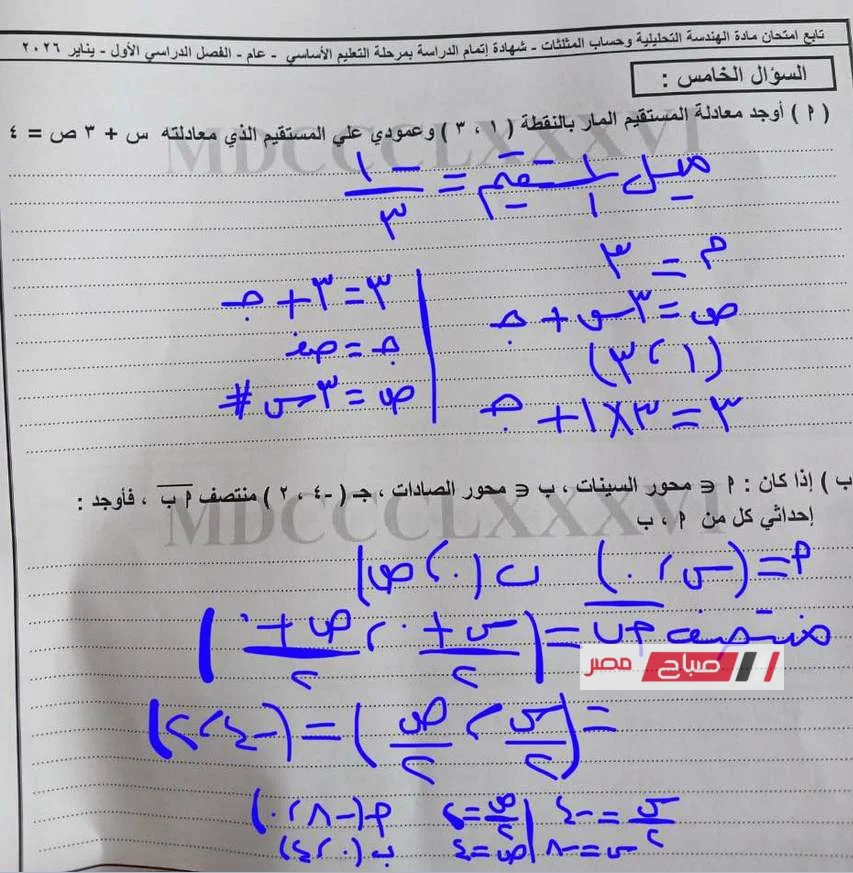 تابع امتحان مادة الهندسة التحليلية وحساب المثلثات - شهادة إتمام الدراسة بمرحلة التعليم الأساسي - عام - الفصل الدراسي الأول - يناير ٢٠٢٦
السؤال الخامس :
( ٩ ) أوجد معادلة المستقيم المار بالنقطة ( ١ ، ٣ ) وعمودي علي المستقيم الذي معادلته س + ٣ ص = ٤
MDCCCLXXXVI
ميل المستقيم = -١/٣
م = ٣
ص = ٣س + جـ
(١ ، ٣)
٣ = ٣×١ + جـ
٣ = ٣ + جـ
جـ = صفر
ص = ٣س #
ب ) إذا كان : ٩ ∈ محور السينات ، ب ∈ محور الصادات ، جـ ( -٤ ، ٢ ) منتصف ٩ ب ، فأوجد :
إحداثي كل من ٩ ، ب
MDCCCLXXXVI
٩ = (س ، ٠) ب (٠ ، ص)
منتصف ٩ب = (س + ٠/٢ ، ص + ٠/٢)
صباح مصر
= (س/٢ ، ص/٢) = (-٤ ، ٢)
س/٢ = -٤ ص/٢ = ٢ ٩(-٨ ، ٠)
س = -٨ ص = ٤ ب(٠ ، ٤)